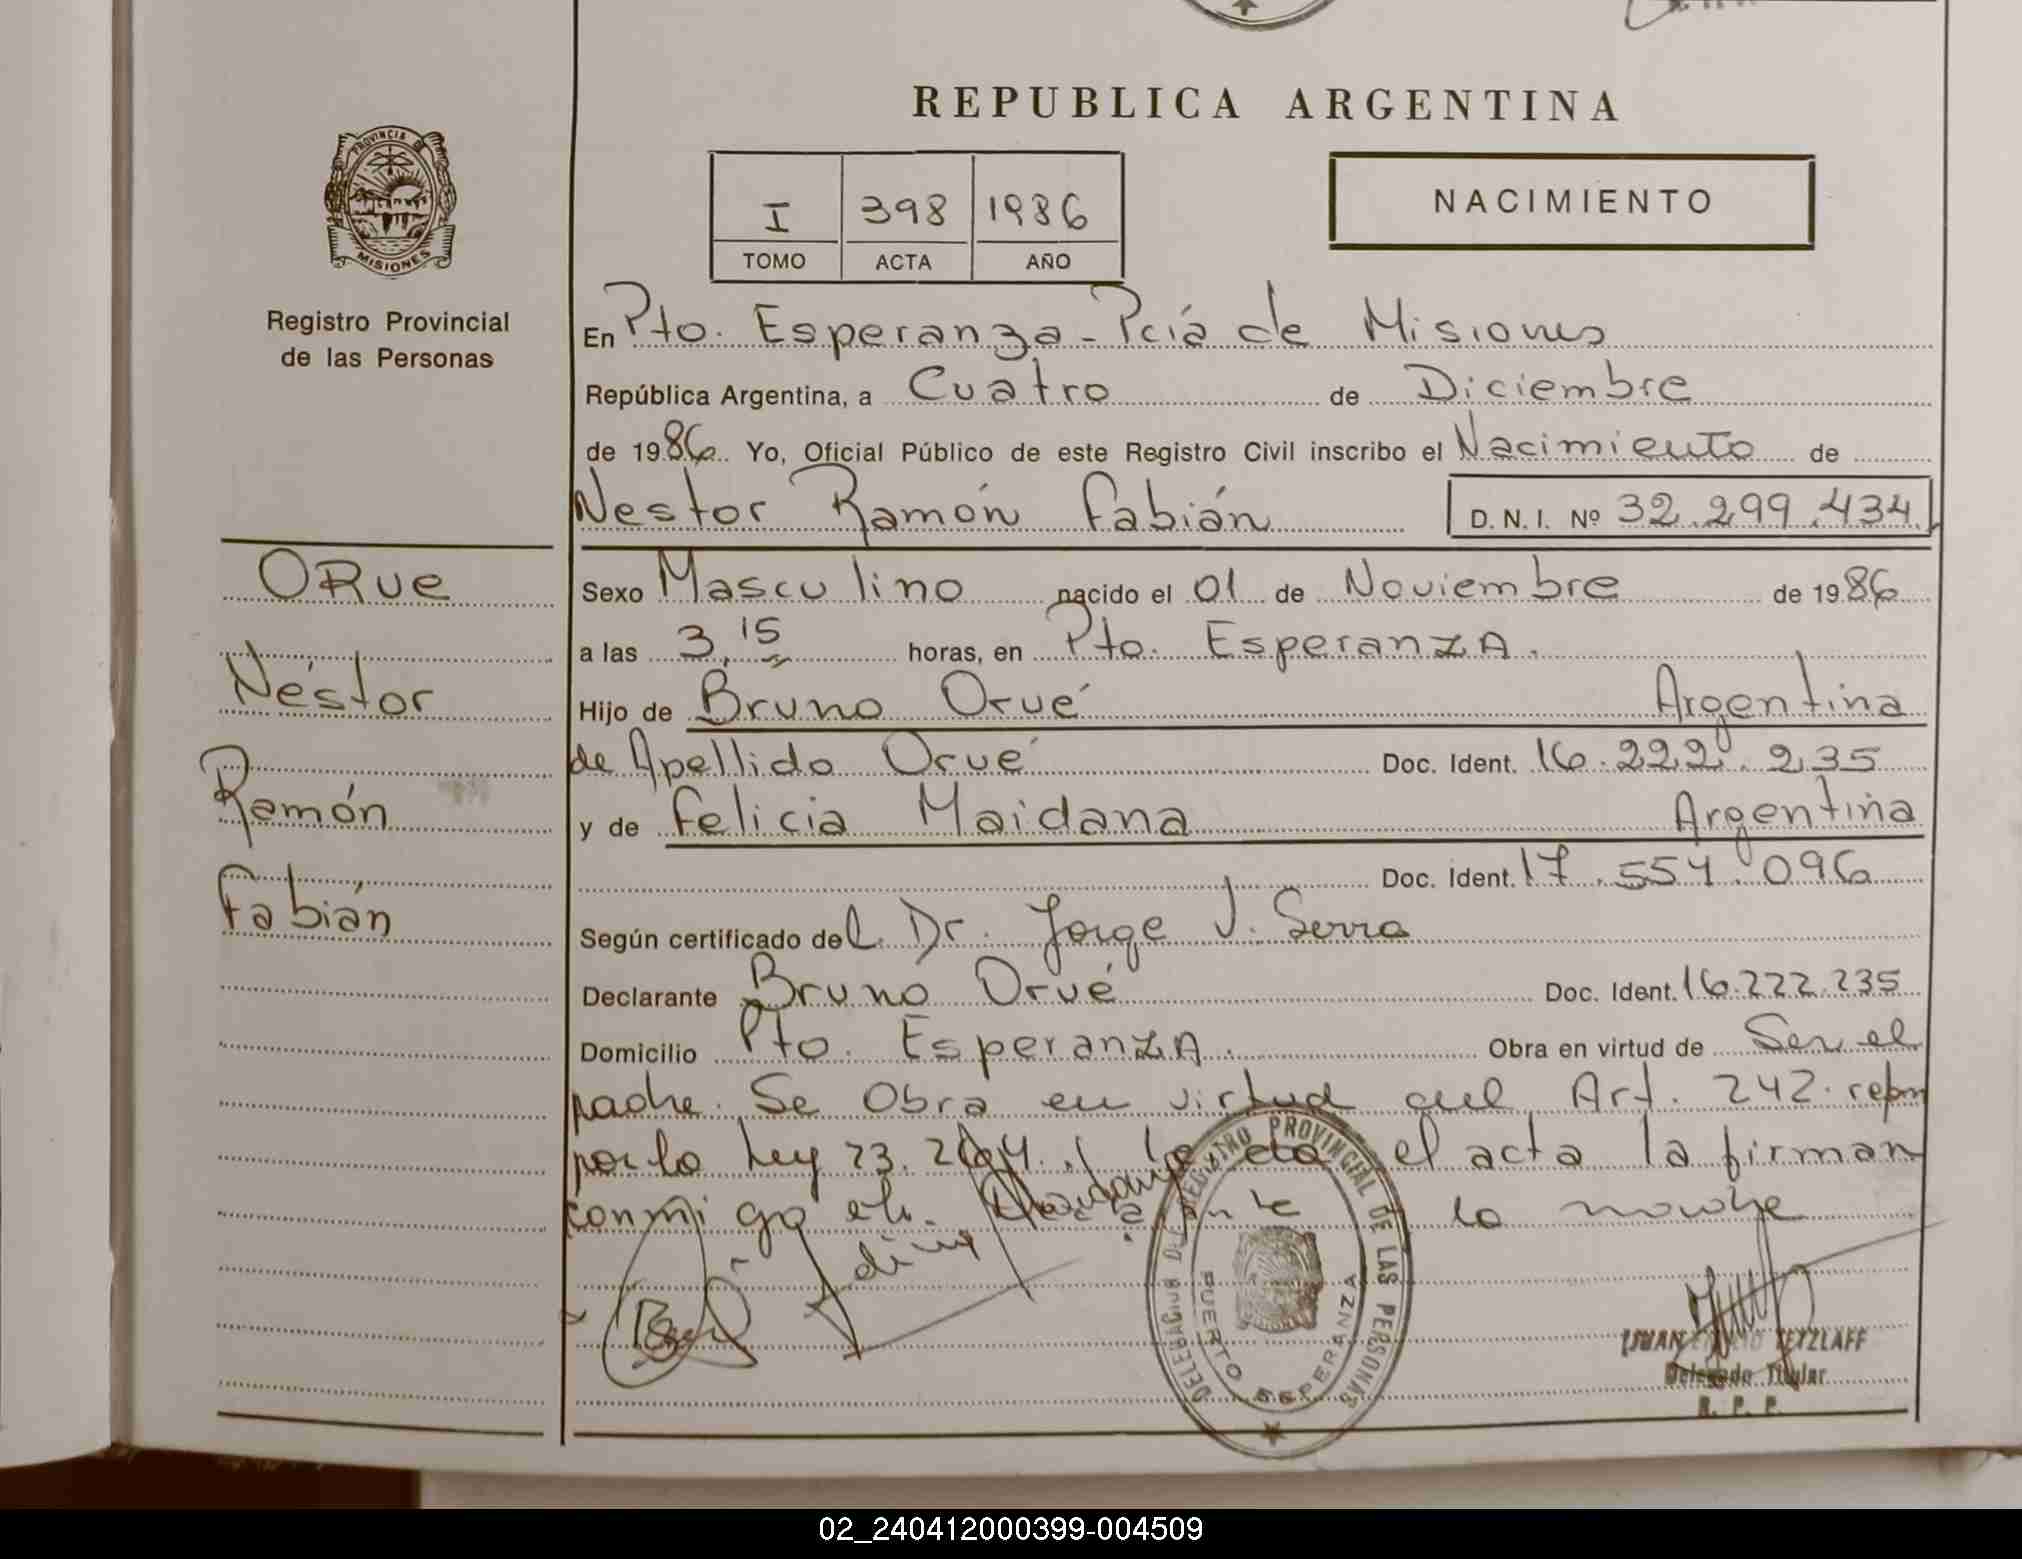 REPUBLICA ARGENTINA
PROVINCIA DE
MISIONES
Registro Provincial
de las Personas
I 398 1986
TOMO ACTA AÑO
NACIMIENTO
En Pto. Esperanza - Pciá de Misiones
República Argentina, a Cuatro de Diciembre
de 1986 Yo, Oficial Público de este Registro Civil inscribo el Nacimiento de
Nestor Ramón Fabián D. N. I. Nº 32.299.434
ORUE
Néstor
Ramón
Fabián
Sexo Masculino nacido el 01 de Noviembre de 1986
a las 3,15 horas, en Pto. EsperanzA.
Hijo de Bruno Orué Argentina
de Apellido Orué Doc. Ident. 16.222.235
y de Felicia Maidana Argentina
Doc. Ident. 17.554.096
Según certificado del Dr. Jorge J. Serra
Declarante Bruno Orué Doc. Ident. 16.222.235
Domicilio Pto. EsperanzA. Obra en virtud de Ser el
padre. Se Obra en virtud del Art. 242. reform
por la Ley 23.264. Leída el acta la firman
conmigo el. Declarante la madre
DELEGACION DEL REGISTRO PROVINCIAL DE LAS PERSONAS
PUERTO ESPERANZA
JUAN TETZLAFF
Delegado Titular
R. P. P.
02_240412000399-004509